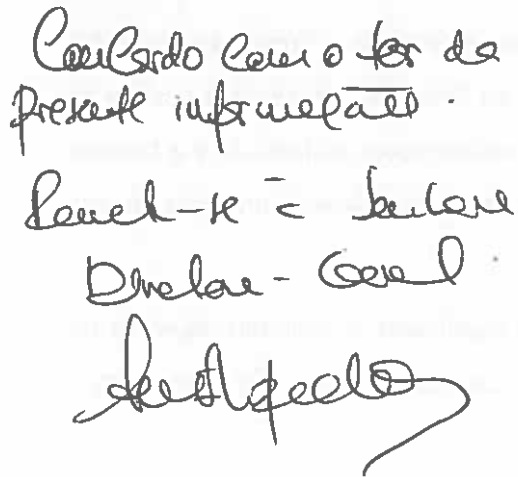 Concordo com o teor da
presente informação.
Remeta-se à Senhora
Diretora-Geral